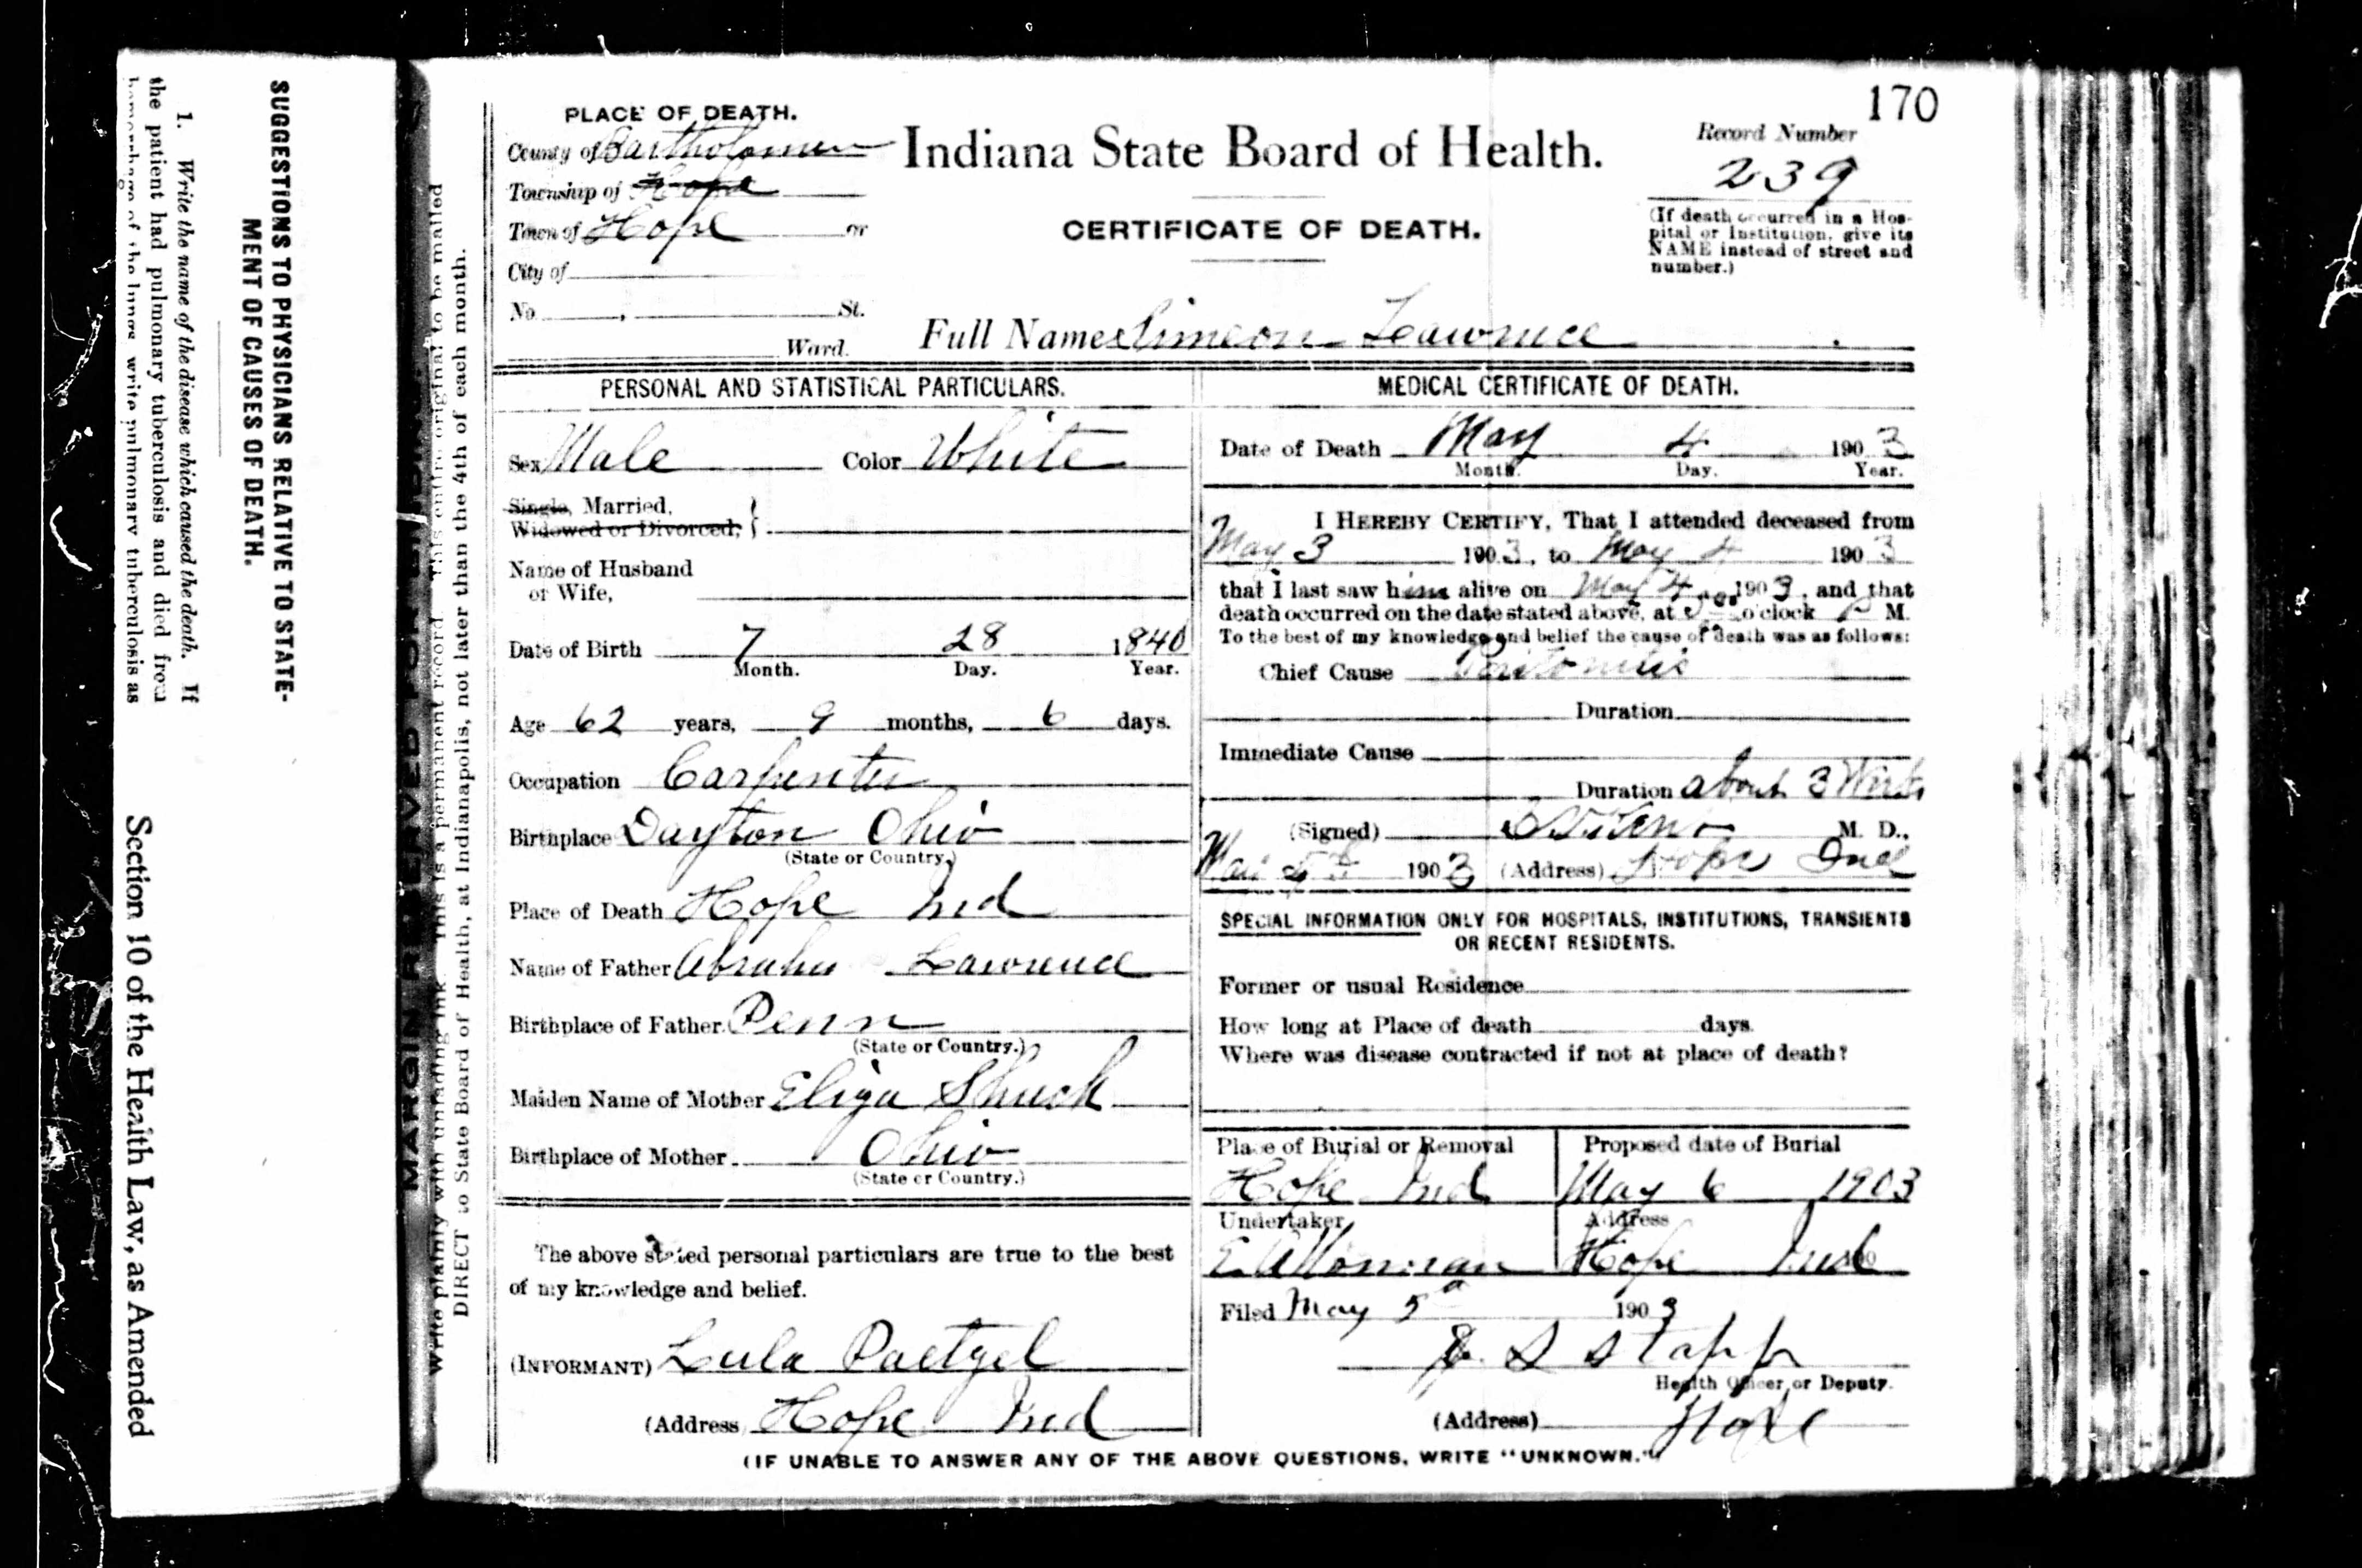 170
PLACE OF DEATH.
County of Bartholomew
Township of Hope
Town of Hope or
City of
No. St.
Ward.
Indiana State Board of Health.
CERTIFICATE OF DEATH.
Record Number
239
(If death occurred in a Hos-
pital or Institution, give its
NAME instead of street and
number.)
Full Name Simeon Lawrence
PERSONAL AND STATISTICAL PARTICULARS.
Sex Male Color White
Single, Married,
Widowed or Divorced,
Name of Husband
or Wife,
Date of Birth 7 28 1840
Month. Day. Year.
Age 62 years, 9 months, 6 days.
Occupation Carpenter
Birthplace Dayton Ohio
(State or Country.)
Place of Death Hope Ind
Name of Father Lawrence
Birthplace of Father Penn
(State or Country.)
Maiden Name of Mother Eliza Shuck
Birthplace of Mother Ohio
(State or Country.)
The above stated personal particulars are true to the best
of my knowledge and belief.
(INFORMANT) Lula Paetzel
(Address) Hope Ind
MEDICAL CERTIFICATE OF DEATH.
Date of Death May 4 1903
Month. Day. Year.
I HEREBY CERTIFY, That I attended deceased from
May 3 1903, to May 4 1903
that I last saw him alive on May 4 1903, and that
death occurred on the date stated above, at o'clock P M.
To the best of my knowledge and belief the cause of death was as follows:
Chief Cause Peritonitis
Duration
Immediate Cause
Duration about 3 Weeks
(Signed) M. D.,
1903 (Address) Hope Ind
SPECIAL INFORMATION ONLY FOR HOSPITALS, INSTITUTIONS, TRANSIENTS
OR RECENT RESIDENTS.
Former or usual Residence
How long at Place of death days.
Where was disease contracted if not at place of death?
Place of Burial or Removal
Hope Ind
Proposed date of Burial
May 6 1903
Undertaker
Address
Hope Ind
Filed May 5 1903
S Stapp
Health Officer or Deputy.
(Address) Hope
(IF UNABLE TO ANSWER ANY OF THE ABOVE QUESTIONS, WRITE "UNKNOWN."
SUGGESTIONS TO PHYSICIANS RELATIVE TO STATE-
MENT OF CAUSES OF DEATH.
1. Write the name of the disease which caused the death. If
the patient had pulmonary tuberculosis and died from
hemorrhage of the lungs, write pulmonary tuberculosis as
Section 10 of the Health Law, as Amended
MARGIN RESERVED FOR
Write plainly with unfading ink. This is a permanent record. This entire original to be mailed
DIRECT to State Board of Health, at Indianapolis, not later than the 4th of each month.